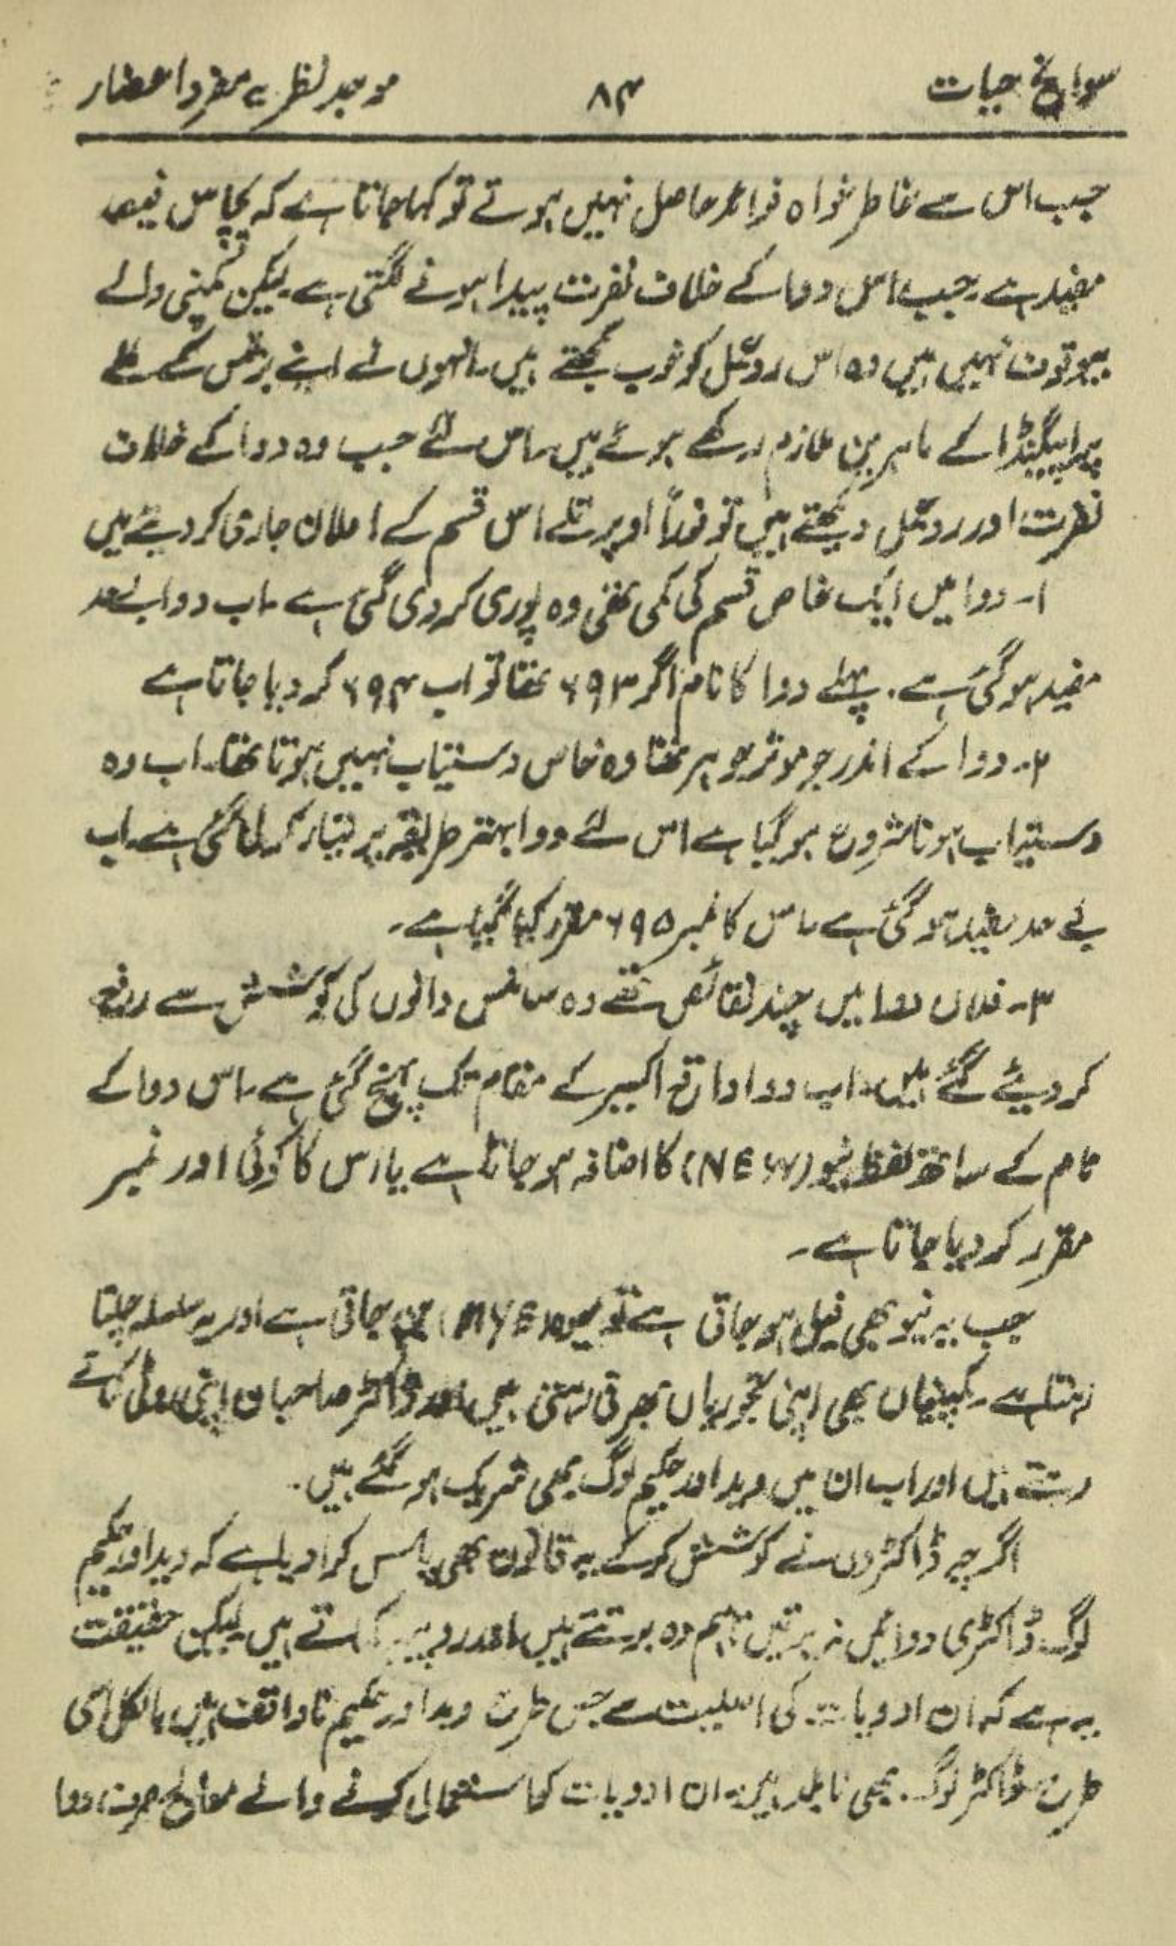 سوانح حیات ۸۴ موجد نظریہ مفرد اعضاء
جب اس سے خاطر خواہ فوائد حاصل نہیں ہوتے تو کہا جاتا ہے کہ پچاس فیصد
مفید ہے۔ جب اس دوا کے خلاف نفرت پیدا ہونے لگتی ہے۔ لیکن کمپنی والے
بیوقوف نہیں ہیں وہ اس ردعمل کو خوب سمجھتے ہیں۔ انہوں نے اپنے بزنس کے لئے
پراپیگنڈا کے ماہرین ملازم رکھے ہوئے ہیں۔ اس لئے جب وہ دوا کے خلاف
نفرت اور ردعمل دیکھتے ہیں تو فوراً اوپر تلے اس قسم کے اعلان جاری کر دیتے ہیں
۱۔ دوا میں ایک خاص قسم کی کمی تھی وہ پوری کر دی گئی ہے۔ اب دوا بے حد
مفید ہو گئی ہے۔ پہلے دوا کا نام اگر ۶۹۳ تھا تو اب ۶۹۴ کر دیا جاتا ہے
۲۔ دوا کے اندر جو موثر جوہر تھا وہ خالص دستیاب نہیں ہوتا تھا۔ اب وہ
دستیاب ہونا شروع ہو گیا ہے اس لئے دوا بہتر طریقہ پر تیار کر لی گئی ہے۔ اب
بے حد مفید ہو گئی ہے۔ اس کا نمبر ۶۹۵ مقرر کیا گیا ہے۔
۳۔ فلاں دوا میں چند نقائص تھے وہ سائنس دانوں کی کوشش سے رفع
کر دیئے گئے ہیں۔ اب دوا واقعی اکسیر کے مقام تک پہنچ گئی ہے۔ اس دوا کے
نام کے ساتھ لفظ نیو (NEW) کا اضافہ ہو جاتا ہے یا اس کا کوئی اور نمبر
مقرر کر دیا جاتا ہے۔
جب یہ نیو بھی فیل ہو جاتی ہے تو بن جاتی ہے اور یہ سلسلہ چلتا
رہتا ہے۔ کمپنیاں بھی اپنی تجوریاں بھرتی رہتی ہیں اور ڈاکٹر صاحبان اپنی روٹی کماتے
رہتے ہیں اور اب ان میں وید اور حکیم لوگ بھی شریک ہو گئے ہیں۔
اگرچہ ڈاکٹروں نے کوشش کر کے یہ قانون بھی پاس کرا دیا ہے کہ وید اور حکیم
لوگ ڈاکٹری دوائیں نہ برتیں تاہم وہ برتتے ہیں اور روپیہ کماتے ہیں لیکن حقیقت
یہ ہے کہ ان ادویات کی اصلیت سے جس طرح وید اور حکیم ناواقف ہیں بالکل اسی
طرح ڈاکٹر لوگ بھی نابلد ہیں۔ ان ادویات کا استعمال کرنے والے معالج صرف دوا